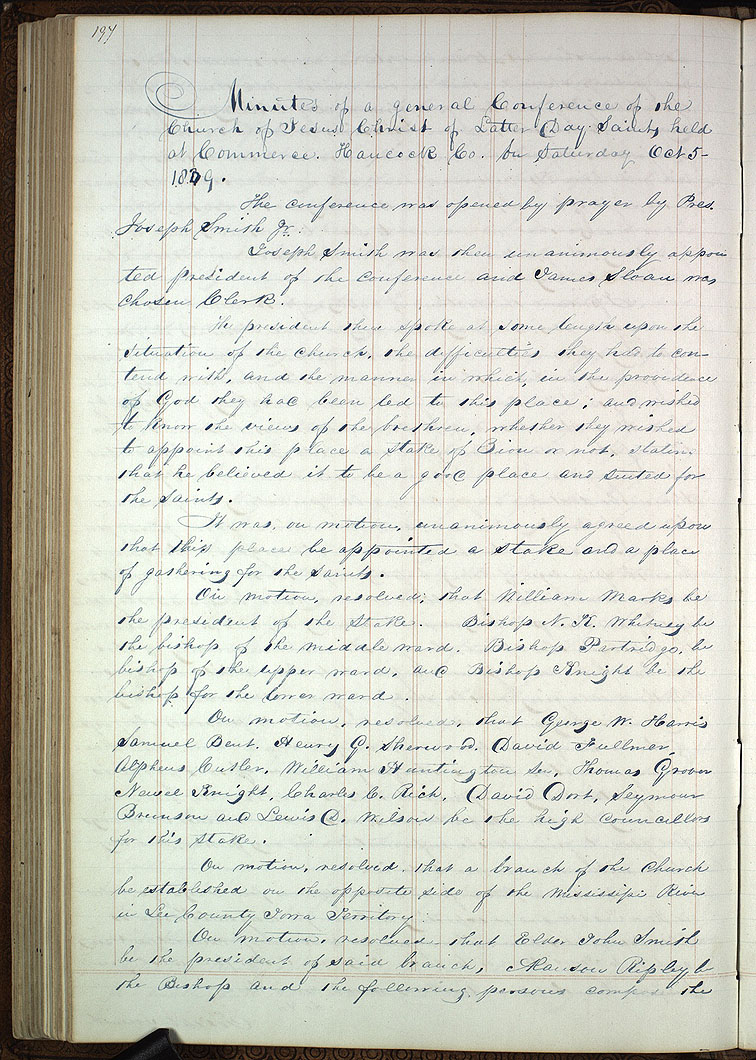 197
Minutes of a general Conference of the
Church of Jesus Christ of Latter Day Saints, held
at Commerce. Hancock Co. on Saturday Oct 5-
1839.
The conference was opened by prayer by Pres.
Joseph Smith Jr.
Joseph Smith was then unanimously appoin
ted president of the conference and James Sloan was
chosen Clerk.
The president then spoke at some length upon the
situation of the church, the difficulties they had to con-
tend with, and the manner in which, in the providence
of God they had been led to this place; and wished
to know the views of the brethren, whether they wished
to appoint this place a Stake of Zion or not, statin
that he believed it to be a good place and suited for
the Saints.
It was, on motion, unanimously agreed upon
that this place be appointed a Stake and a place
of gathering for the Saints.
On motion, resolved; that William Marks be
the president of the Stake. Bishop N. K. Whitney be
the bishop of the middle ward. Bishop Partridge, be
bishop of the upper ward, and Bishop Knight be the
bishop for the lower ward.
On motion, resolved, that George W. Harris
Samuel Bent. Henry G. Sherwood. David Fullmer,
Alpheus Cutler, William Huntington Sen, Thomas Grover
Newel Knight, Charles C. Rich, David Dort, Seymour
Brunson and Lewis D. Wilson be the high Councillors
for this Stake.
On motion, resolved, that a branch of the Church
be established on the opposite side of the Mississipi River
in Lee County Iowa Territory.
On motion, resolved, that Elder John Smith
be the president of said branch, Alanson Ripley b
the Bishop and the following persons compose the